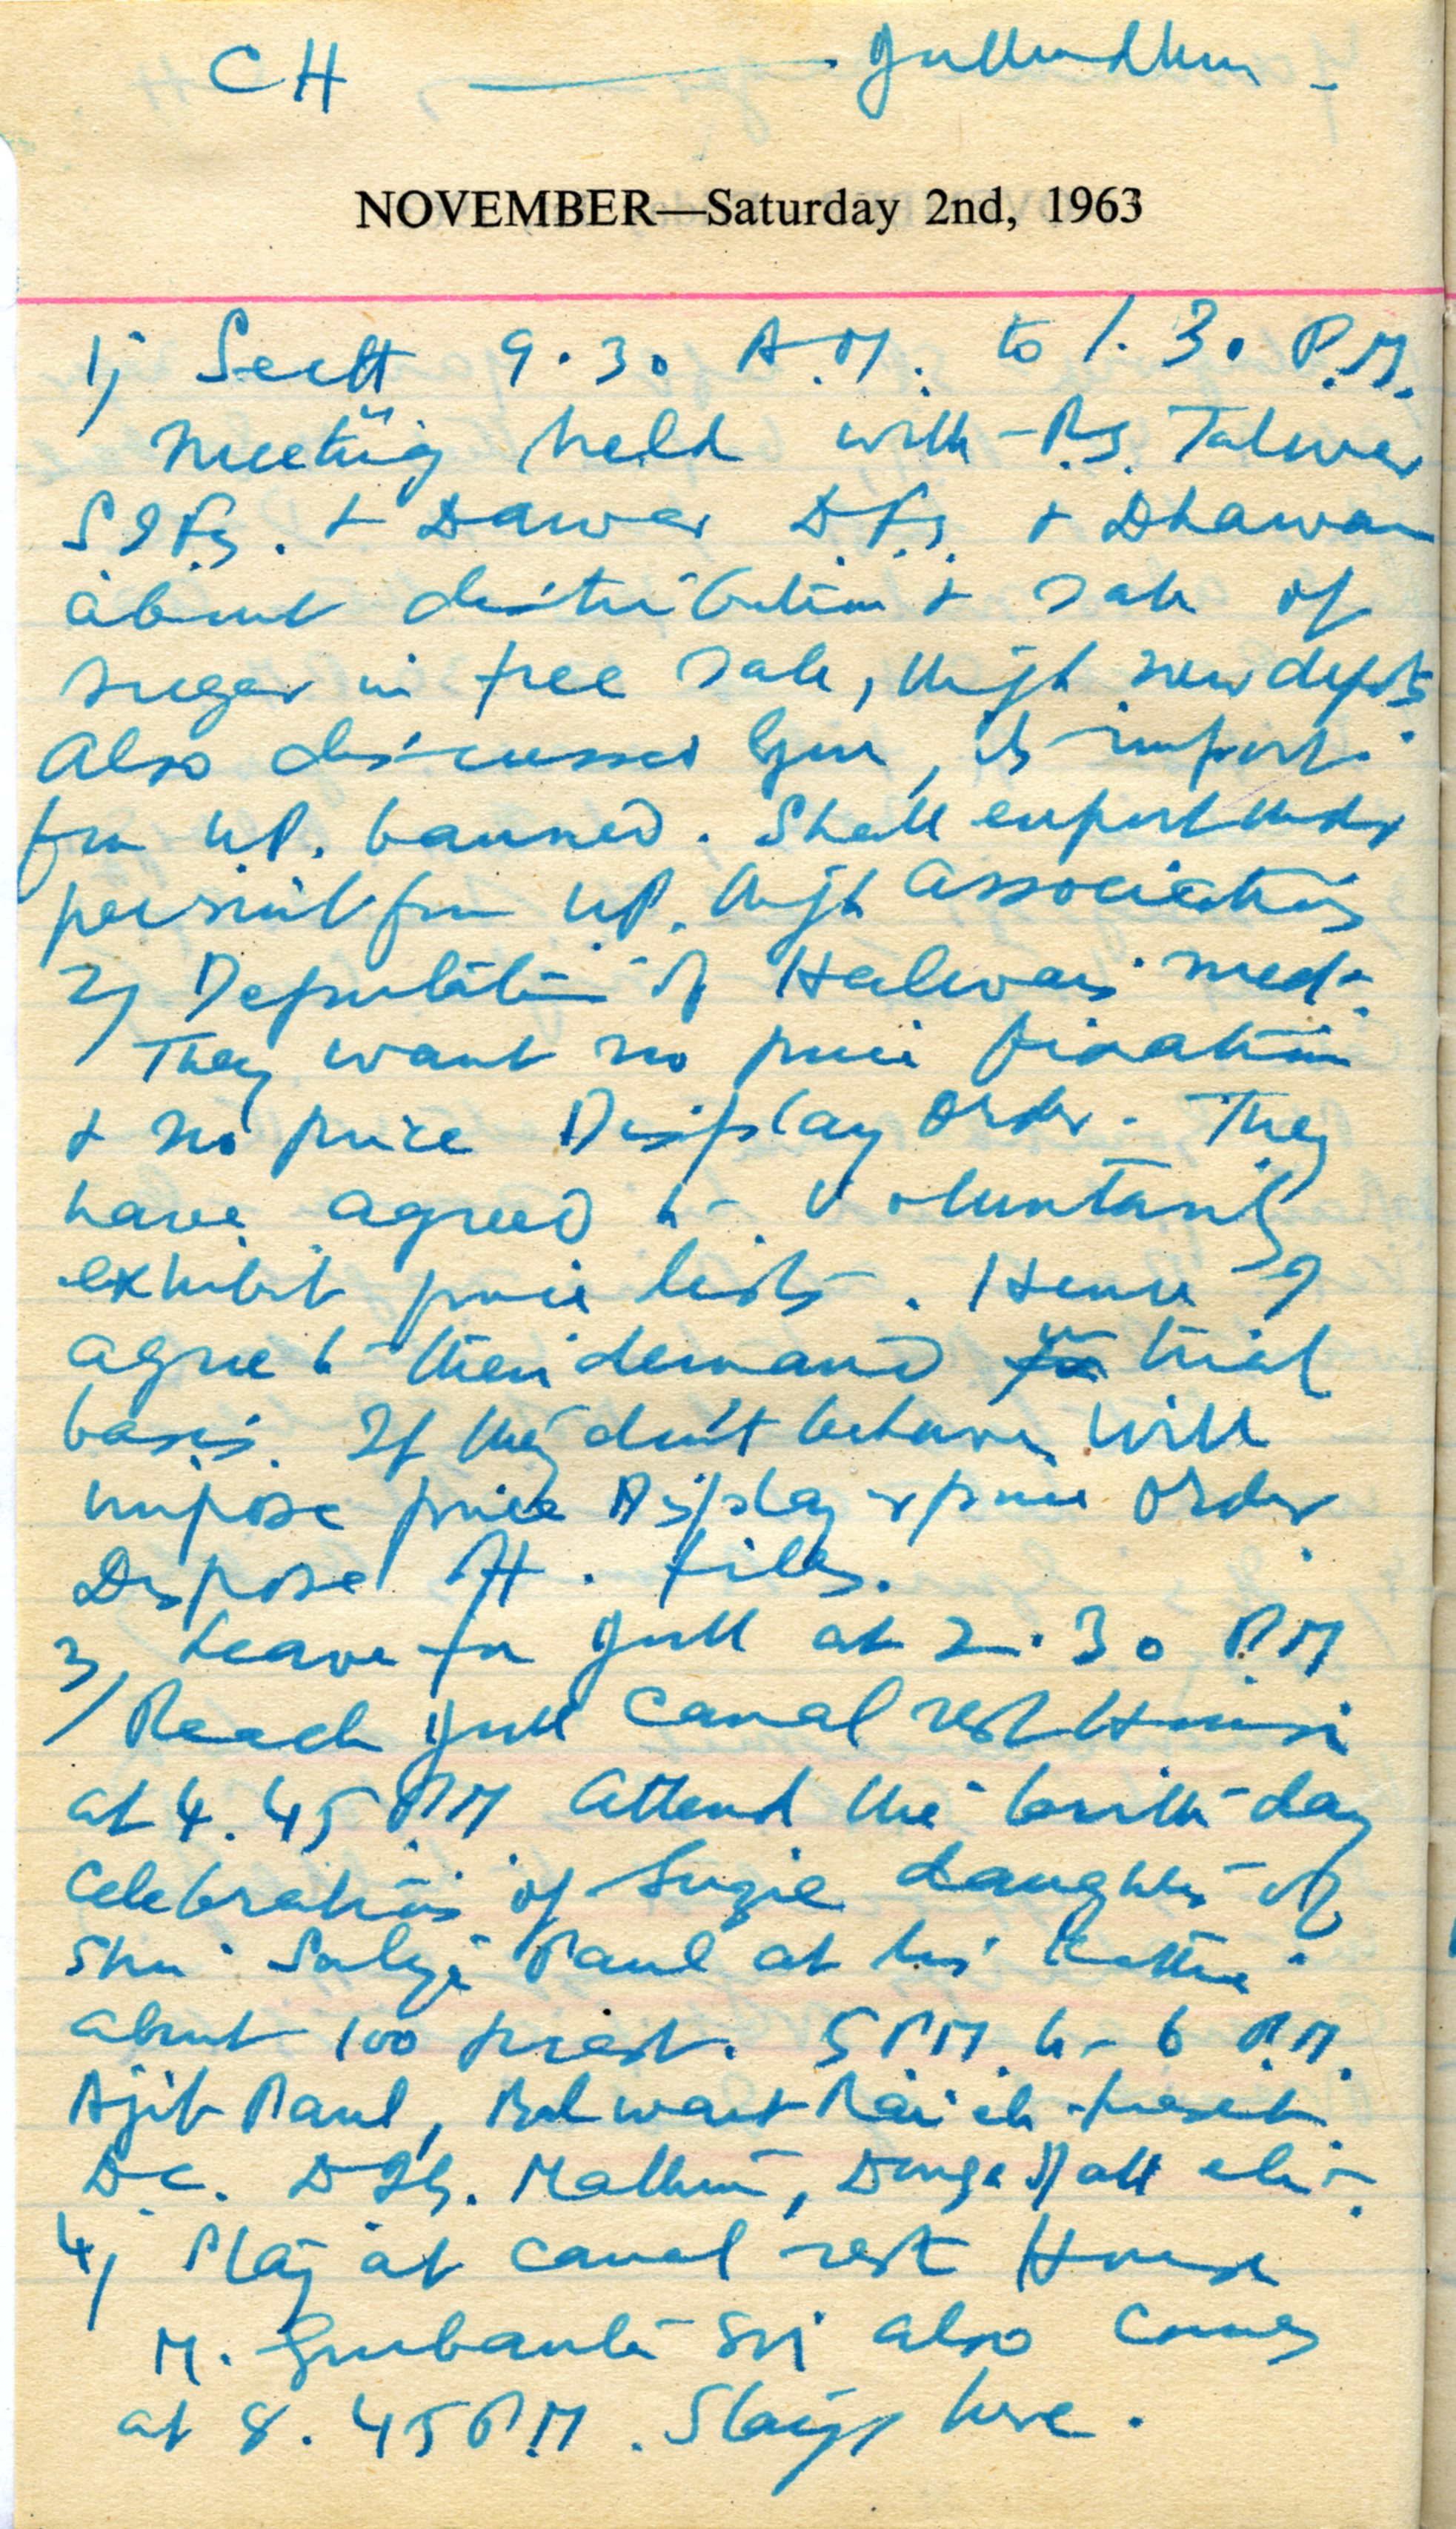 CH ——— Jullundhur -
NOVEMBER—Saturday 2nd, 1963
1) Sectt 9.30 A.M. to 1.30 P.M.
Meeting held with R.S. Talwar
S.I.F.S. + Dawar D.F.S. + Dhawan
about distribution + sale of
sugar in free sale, through new depots
Also discussed Gur, its import
from U.P. banned. Shall export under
permit from U.P. through Associations
2) Deputation of Halwais met.
They want no price fixation
+ no price Display Order. They
have agreed to voluntarily
exhibit price lists. Hence I
agree to their demand on trial
basis. If they don't behave, will
impose price Display & price Order
Dispose Att. files.
3) Leave for Jull at 2.30 P.M
Reach Jull Canal rest House
at 4.45 P.M Attend the birth day
Celebrations of Suzie daughter of
Shri Satya Paul at his
about 100 presnt. 5 P.M. to 6 P.M.
Ajit Paul, Balwant Rai etc present
D.C. D.I.G. Mathur, Durga Datt etc.
4) Stay at Canal rest House
M. Gurbanta Sri also comes
at 8.45 P.M. Stays here.